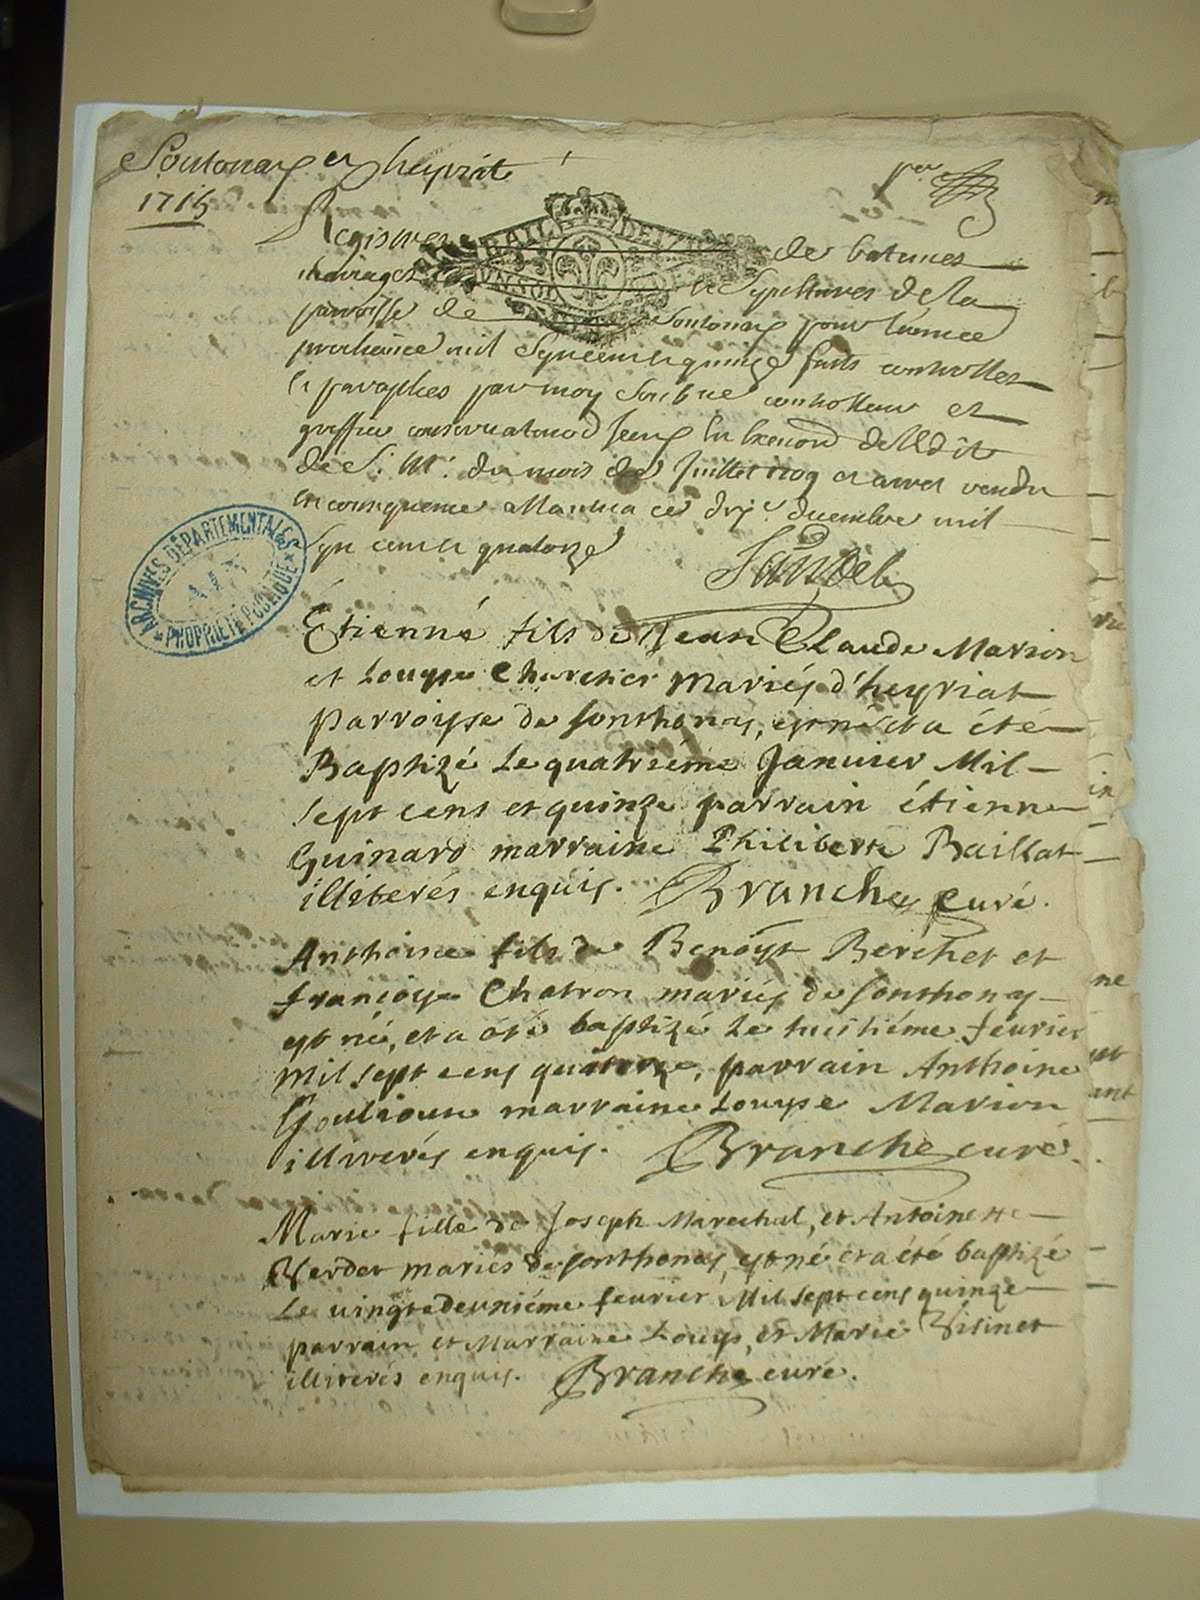 Soutonax et heyriat
1715
Registre de batemes
mariages et Sepultures de la
parroisse de Soutonax pour l'année
prochaine mil Sept cent et quinze faits controller
et paraphés par moy controlleur et
greffier conservateur En de l'Edit
de S. M. du mois de Juillet 1709 et vendu
en consequence a Nantua ce dix decembre mil
Sept cent et quatorze
ARCHIVES DÉPARTEMENTALES
PROPRIÉTÉ PUBLIQUE
Etienné fils de Jean Claude Marion
et Louyse Charetier Mariés d'heyriat
Parroisse de sonthonax, est né et a été
Baptizé Le quatriéme Janvier Mil
sept cens et quinze parrain étienne
Guinard marraine Philiberte Baillat
illiterés enquis. Branche curé.
Anthoine fils de Benoyt Berchet et
françoyse Chatron mariés de sonthonax
est né, et a été baptizé Le huitiéme feurier
Mil sept cens quatorze, parrain Anthoine
Goulioux marraine Louyse Marion
illiterés enquis. Branche curé.
Marie fille de Joseph Marechal, et Antoinette
Verdet mariés de sonthonax, est né et a été baptizé
Le vingt deuxiéme feurier Mil sept cens quinze
parrain et Marraine Louys, et Marie Visinet
illiterés enquis. Branche curé.